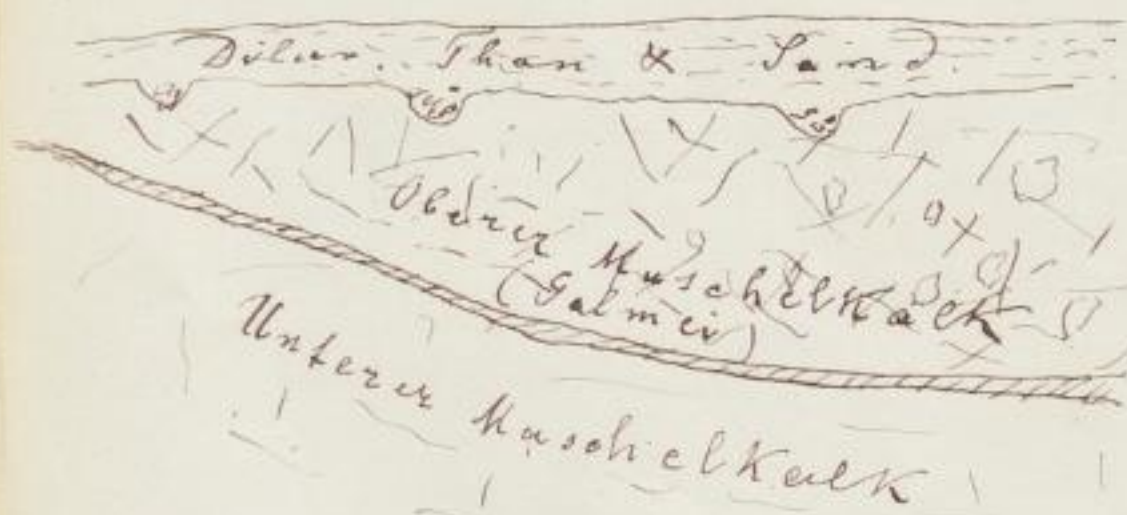 Diluv. Thon & Sand.
Oberer Muschelkalk
(Galmei)
Unterer Muschelkalk